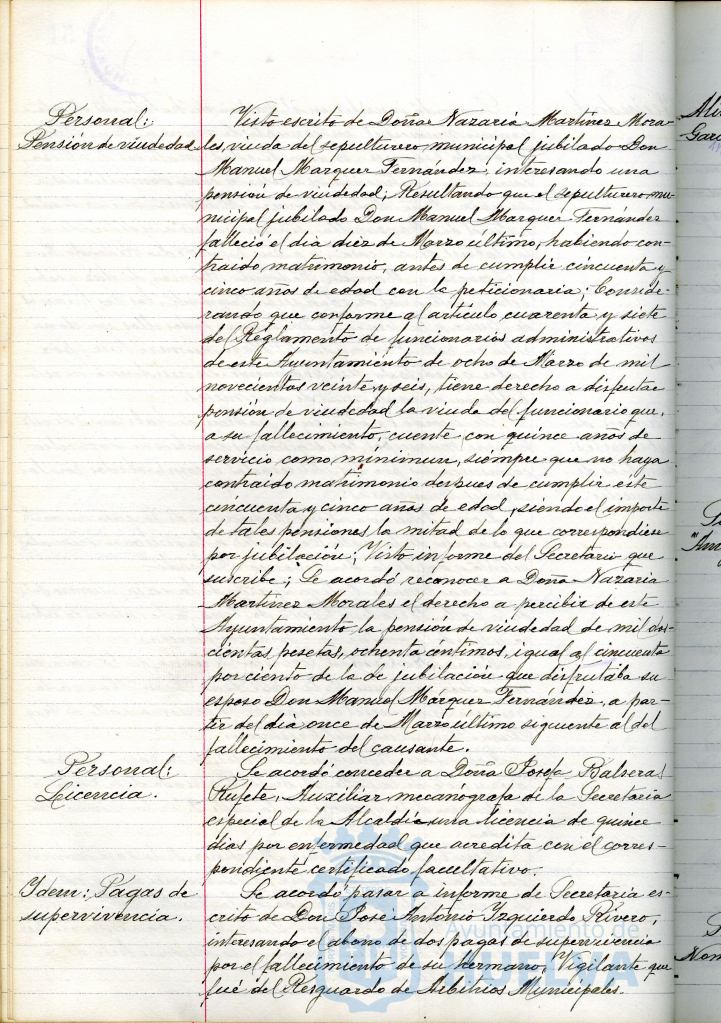 Personal:
Pensión de viudedad
Visto escrito de Doña Nazaria Martínez Mora-
les, viuda del sepulturero municipal jubilado Don
Manuel Marquez Fernández, interesando una
pensión de viudedad; Resultando que el sepulturero mu-
nicipal jubilado Don Manuel Marquez Fernandez
falleció el dia diez de Marzo último, habiendo con-
traido matrimonio, antes de cumplir cincuenta y
cinco años de edad con la peticionaria; Conside-
rando que conforme al artículo cuarenta y siete
del Reglamento de funcionarios administrativos
de este Ayuntamiento de ocho de Marzo de mil
novecientos veinte y seis, tiene derecho a disfrutar
pensión de viudedad la viuda del funcionario que,
a su fallecimiento, cuente con quince años de
servicio como mínimun, siempre que no haya
contraido matrimonio despues de cumplir éste
cincuenta y cinco años de edad, siendo el importe
de tales pensiones la mitad de lo que correspondiese
por jubilación; Visto informe del Secretario que
suscribe; Se acordó reconocer a Doña Nazaria
Martinez Morales el derecho a percibir de este
Ayuntamiento la pensión de viudedad de mil dos-
cientas pesetas, ochenta centimos, igual al cincuenta
por ciento de la de jubilación que disfrutaba su
esposo Don Manuel Márquez Fernández, a par-
tir del dia once de Marzo último siguiente al del
fallecimiento del causante.
Personal:
Licencia.
Se acordó conceder a Doña Josefa Balsera
Rufete, Auxiliar mecanógrafa de la Secretaria
especial de la Alcaldía una licencia de quince
dias por enfermedad que acredita con el corres-
pondiente certificado facultativo.
Idem: Pagas de
supervivencia.
Se acordó pasar a informe de Secretaria es-
crito de Don José Antonio Yzquierdo Rivero,
interesando el abono de dos pagas de supervivencia
por el fallecimiento de su hermano, Vigilante que
fué del Resguardo de Arbitrios Municipales.
Ayuntamiento de
HUELVA